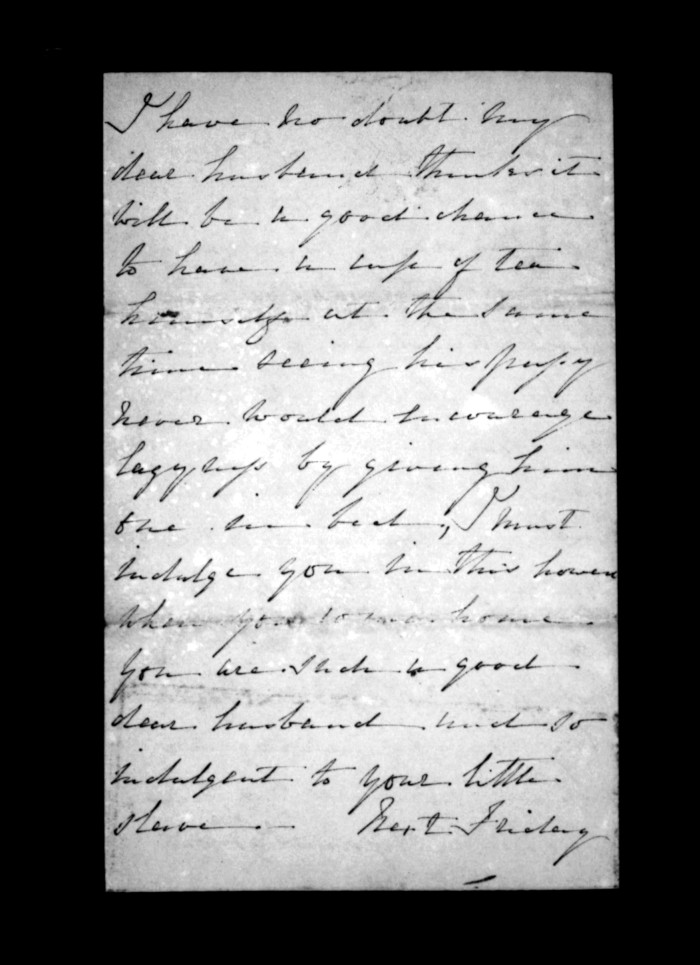 I have no doubt my
dear husband thinks it
will be a good chance
to have a cup of tea
himself at the same
time seeing his pussy
never would encourage
lazyness by giving him
one in bed, I must
indulge you in this howeve
when you come home
you are such a good
dear husband and so
indulgent to your little
slave — Next Friday